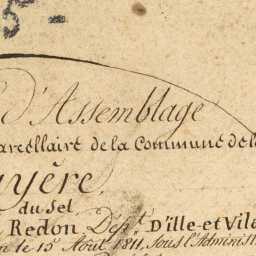 5
d'Assemblage
arcellaire de la Commune de l
uyère
du Sel
Redon, Dépt. D'ille-et-Vila
le 15 Août 1811, Sous l'Administ